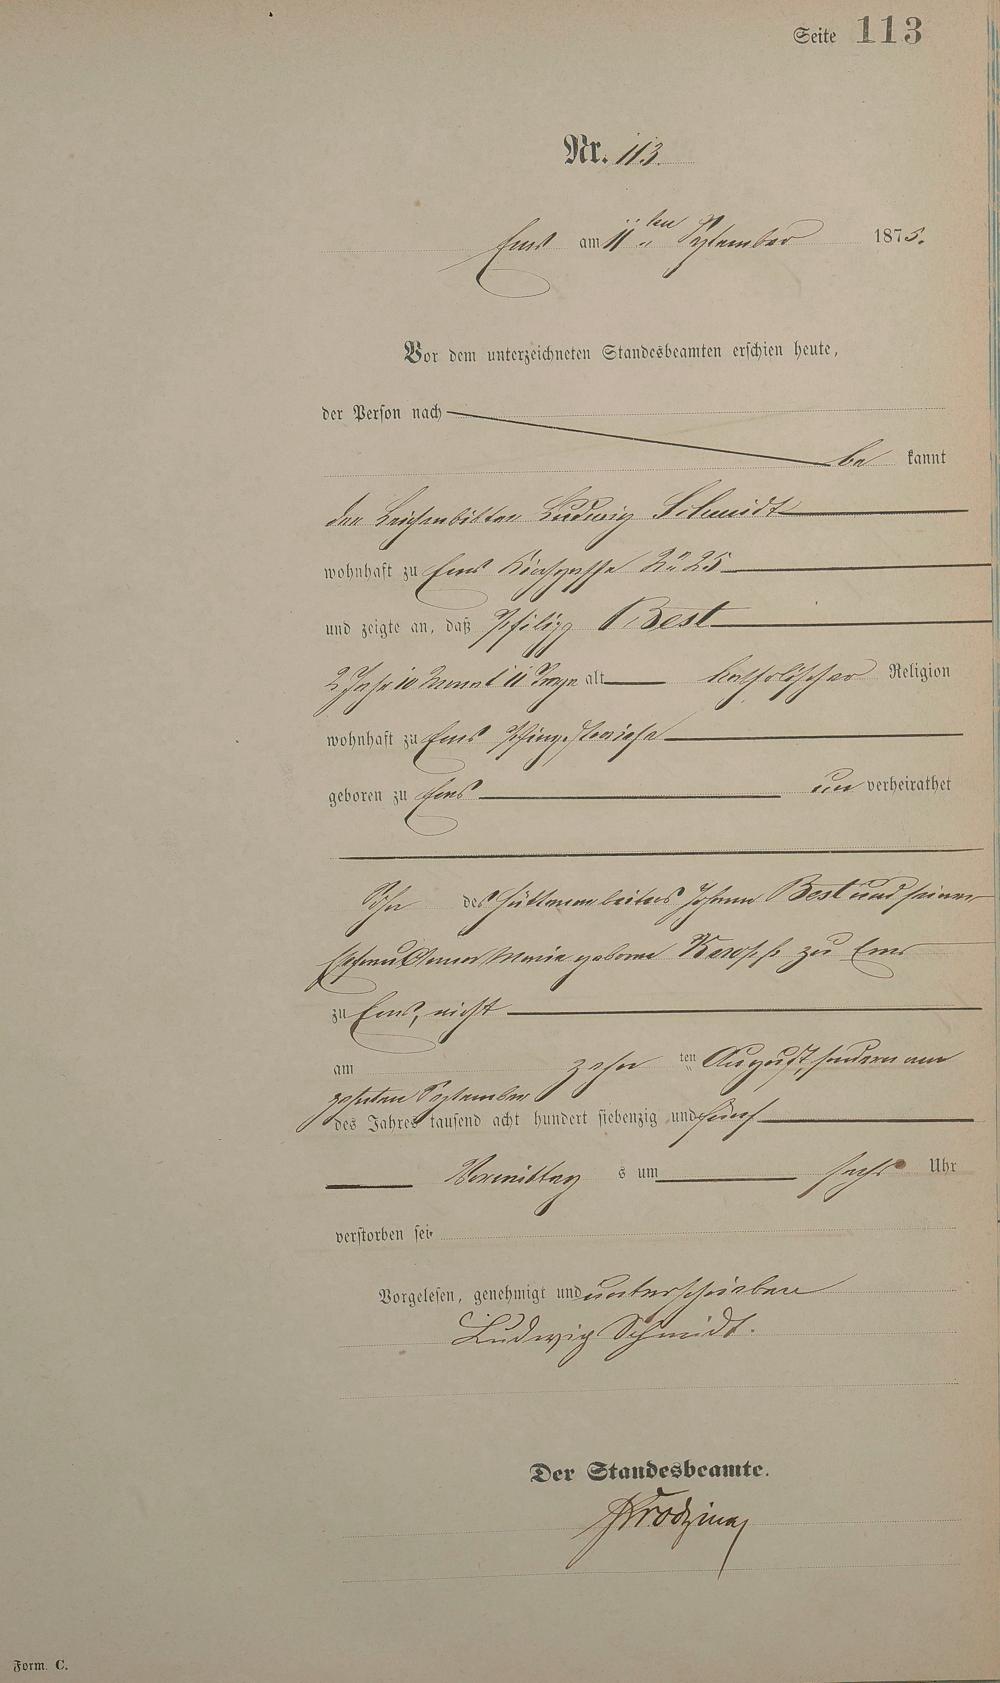 Seite 113
Nr. 113.
Ems am 11ten September 1875.
Vor dem unterzeichneten Standesbeamten erschien heute,
der Person nach
be kannt
der Leichenbitter Ludwig Schmidt
wohnhaft zu Ems Kirchgasse No 25
und zeigte an, daß Philipp Best
2 Jahr 10 Monat 11 Tage alt katholischer Religion
wohnhaft zu Ems Pfingstwiese
geboren zu Ems un verheirathet
Sohn des Hüttenarbeiters Johann Best und seiner
Ehefrau Anna Maria geborne zu Ems
zu Ems, nicht
am zehn ten August, sondern am
zehnten September
des Jahres tausend acht hundert siebenzig und fünf
Vormittag s um sechs Uhr
verstorben sei.
Vorgelesen, genehmigt und unterschrieben
Ludwig Schmidt.
Der Standesbeamte.
Form. C.